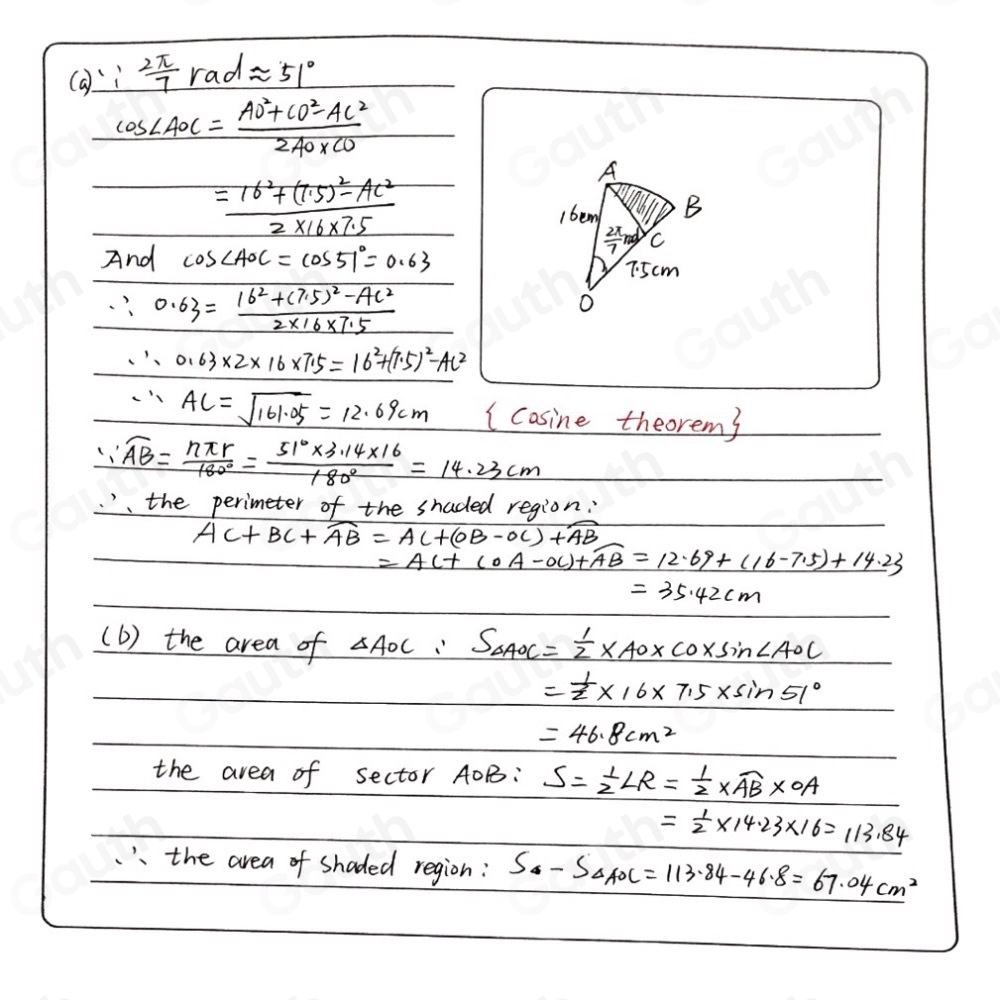 (a) ∵ 2π/7 rad ≈ 51°
cos∠AOC = (AO²+CO²-AC²)/(2AO×CO)
= (16²+(7.5)²-AC²)/(2×16×7.5)
And cos∠AOC = cos51° = 0.63
∴ 0.63 = (16²+(7.5)²-AC²)/(2×16×7.5)
∴ 0.63×2×16×7.5 = 16²+(7.5)²-AC²
∴ AC = √161.05 = 12.69cm {Cosine theorem}
∵ A͡B = nπr/180° = (51°×3.14×16)/180° = 14.23cm
∴ the perimeter of the shaded region:
AC+BC+A͡B = AC+(OB-OC)+A͡B
= AC+(OA-OC)+A͡B = 12.69+(16-7.5)+14.23
= 35.42cm
A
16cm
B
2π/7 rad
C
7.5cm
O
(b) the area of △AOC : S△AOC = 1/2 ×AO×CO×sin∠AOC
= 1/2 ×16×7.5×sin51°
= 46.8cm²
the area of sector AOB: S = 1/2 LR = 1/2 ×A͡B×OA
= 1/2 ×14.23×16 = 113.84
∴ the area of shaded region: S - S△AOC = 113.84-46.8 = 67.04cm²
Gauth